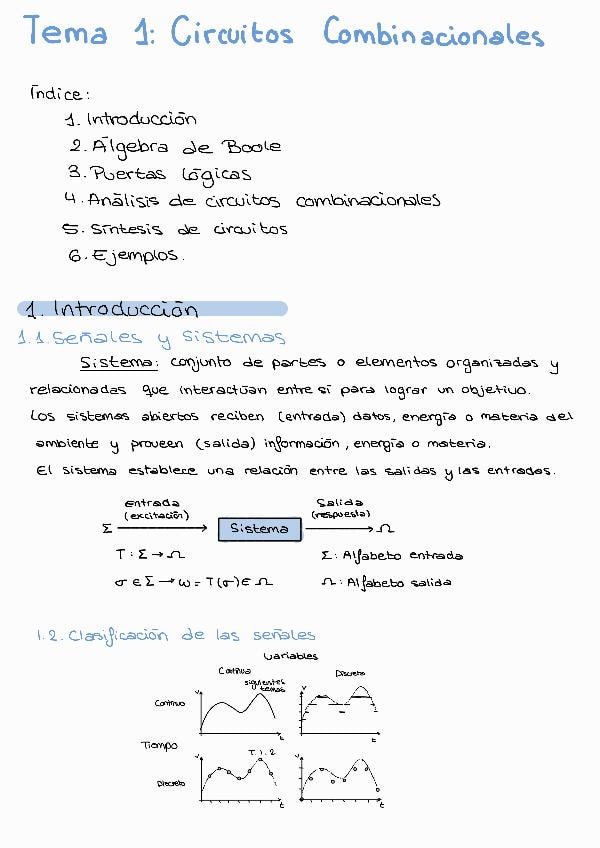 Tema 1: Circuitos Combinacionales
Índice:
1. Introducción
2. Álgebra de Boole
3. Puertas lógicas
4. Análisis de circuitos combinacionales
5. Síntesis de circuitos
6. Ejemplos.
1. Introducción
1.1. Señales y Sistemas
Sistema: conjunto de partes o elementos organizadas y
relacionadas que interactúan entre sí para lograr un objetivo.
Los sistemas abiertos reciben (entrada) datos, energía o materia del
ambiente y proveen (salida) información, energía o materia.
El sistema establece una relación entre las salidas y las entradas.
Entrada
(excitación)
Salida
(respuesta)
Σ → Sistema → Ω
T: Σ → Ω
Σ: Alfabeto entrada
σ ∈ Σ → ω = T(σ) ∈ Ω
Ω: Alfabeto salida
1.2. Clasificación de las señales
Variables
Continua
Discreto
siguientes
temas
Continuo
V
t
V
t
Tiempo
T. 1. 2
Discreto
V
t
V
t